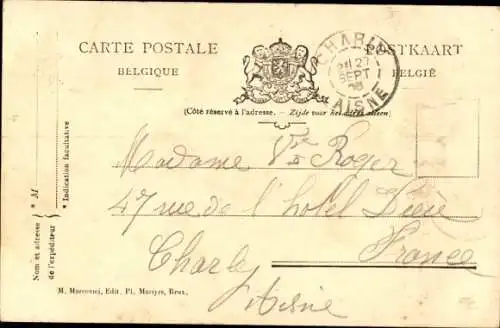 CARTE POSTALE
BELGIQUE
POSTKAART
BELGIË
CHARLY
27
SEPT
AISNE
(Côté réservé à l'adresse. – Zijde voor het adres alleen)
* M
* Indication facultative
Nom et adresse
de l'expéditeur
Madame Vve Roger
47 rue de l'hotel Dieu
Charly France
Aisne
M. Marcovici, Edit. Pl. Masuyer, Brux.